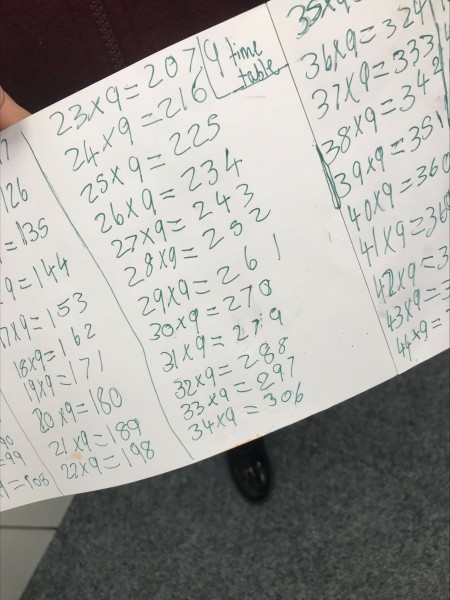 99
=108
126
=135
×9=144
17×9=153
18×9=162
19×9=171
20×9=180
21×9=189
22×9=198
23×9=207
24×9=216
25×9=225
26×9=234
27×9=243
28×9=252
29×9=261
30×9=270
31×9=279
32×9=288
33×9=297
34×9=306
9 time
table
35×9
36×9=324
37×9=333
38×9=342
39×9=351
40×9=360
41×9=36
42×9=3
43×9=3
44×9=